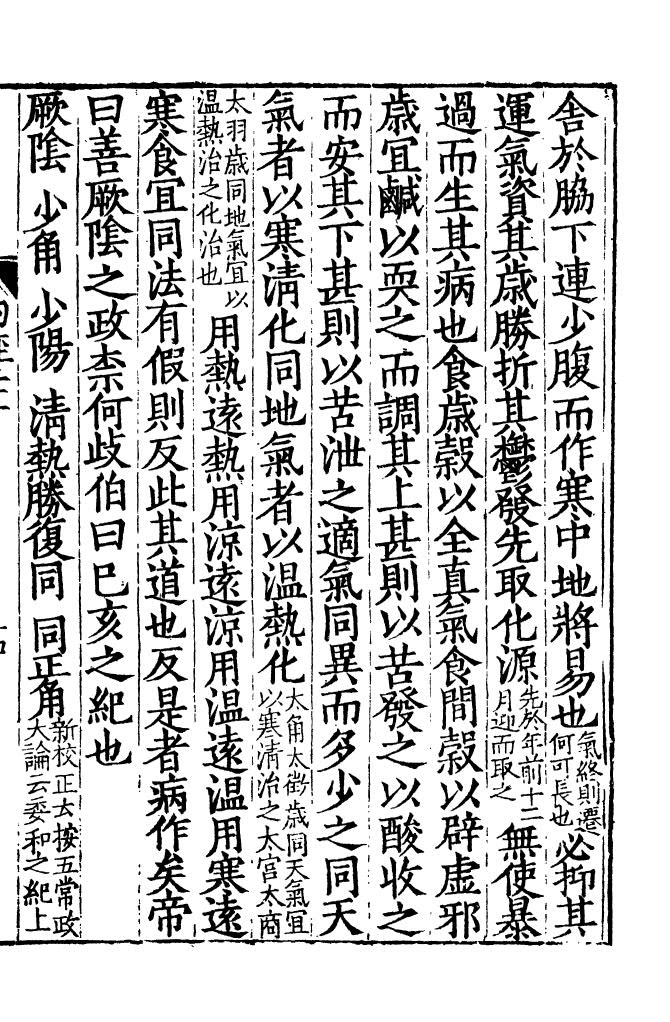 舎於脇下連少腹而作寒中地將易也氣終則遷何可長也必抑其
運氣資其歳勝折其鬱發先取化源先於年前十二月迎而取之無使暴
過而生其病也食歳榖以全真氣食間榖以辟虚邪
歳宜鹹以耎之而調其上甚則以苦發之以酸收之
而安其下甚則以苦泄之適氣同異而多少之同天
氣者以寒淸化同地氣者以温熱化太角太徵歳同天氣宜以寒清治之太宫太商
太羽歳同地氣宜以温熱治之化治也用熱遠熱用涼遠涼用温遠温用寒遠
寒食宜同法有假則反此其道也反是者病作矣帝
曰善厥陰之政柰何歧伯曰巳亥之紀也
厥陰 少角 少陽 淸熱勝復同 同正角新校正云按五常政大論云委和之紀上